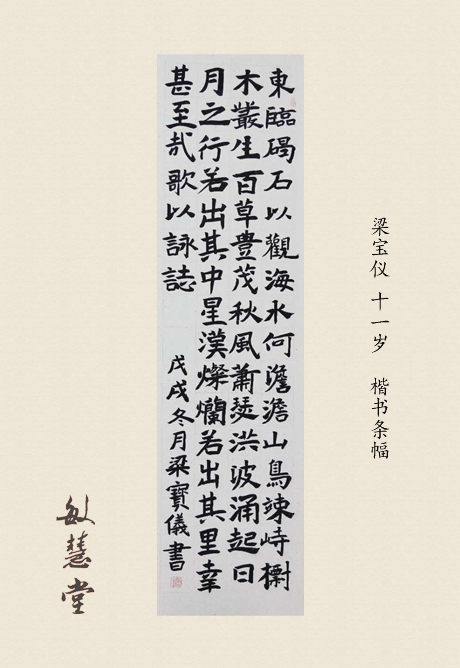 梁宝仪 十一岁 楷书条幅
東臨碣石以觀海水何澹澹山鳥竦峙樹
木叢生百草豊茂秋風蕭瑟洪波涌起日
月之行若出其中星漢燦爛若出其里幸
甚至哉歌以詠誌
戊戌冬月梁寶儀書
敏慧堂